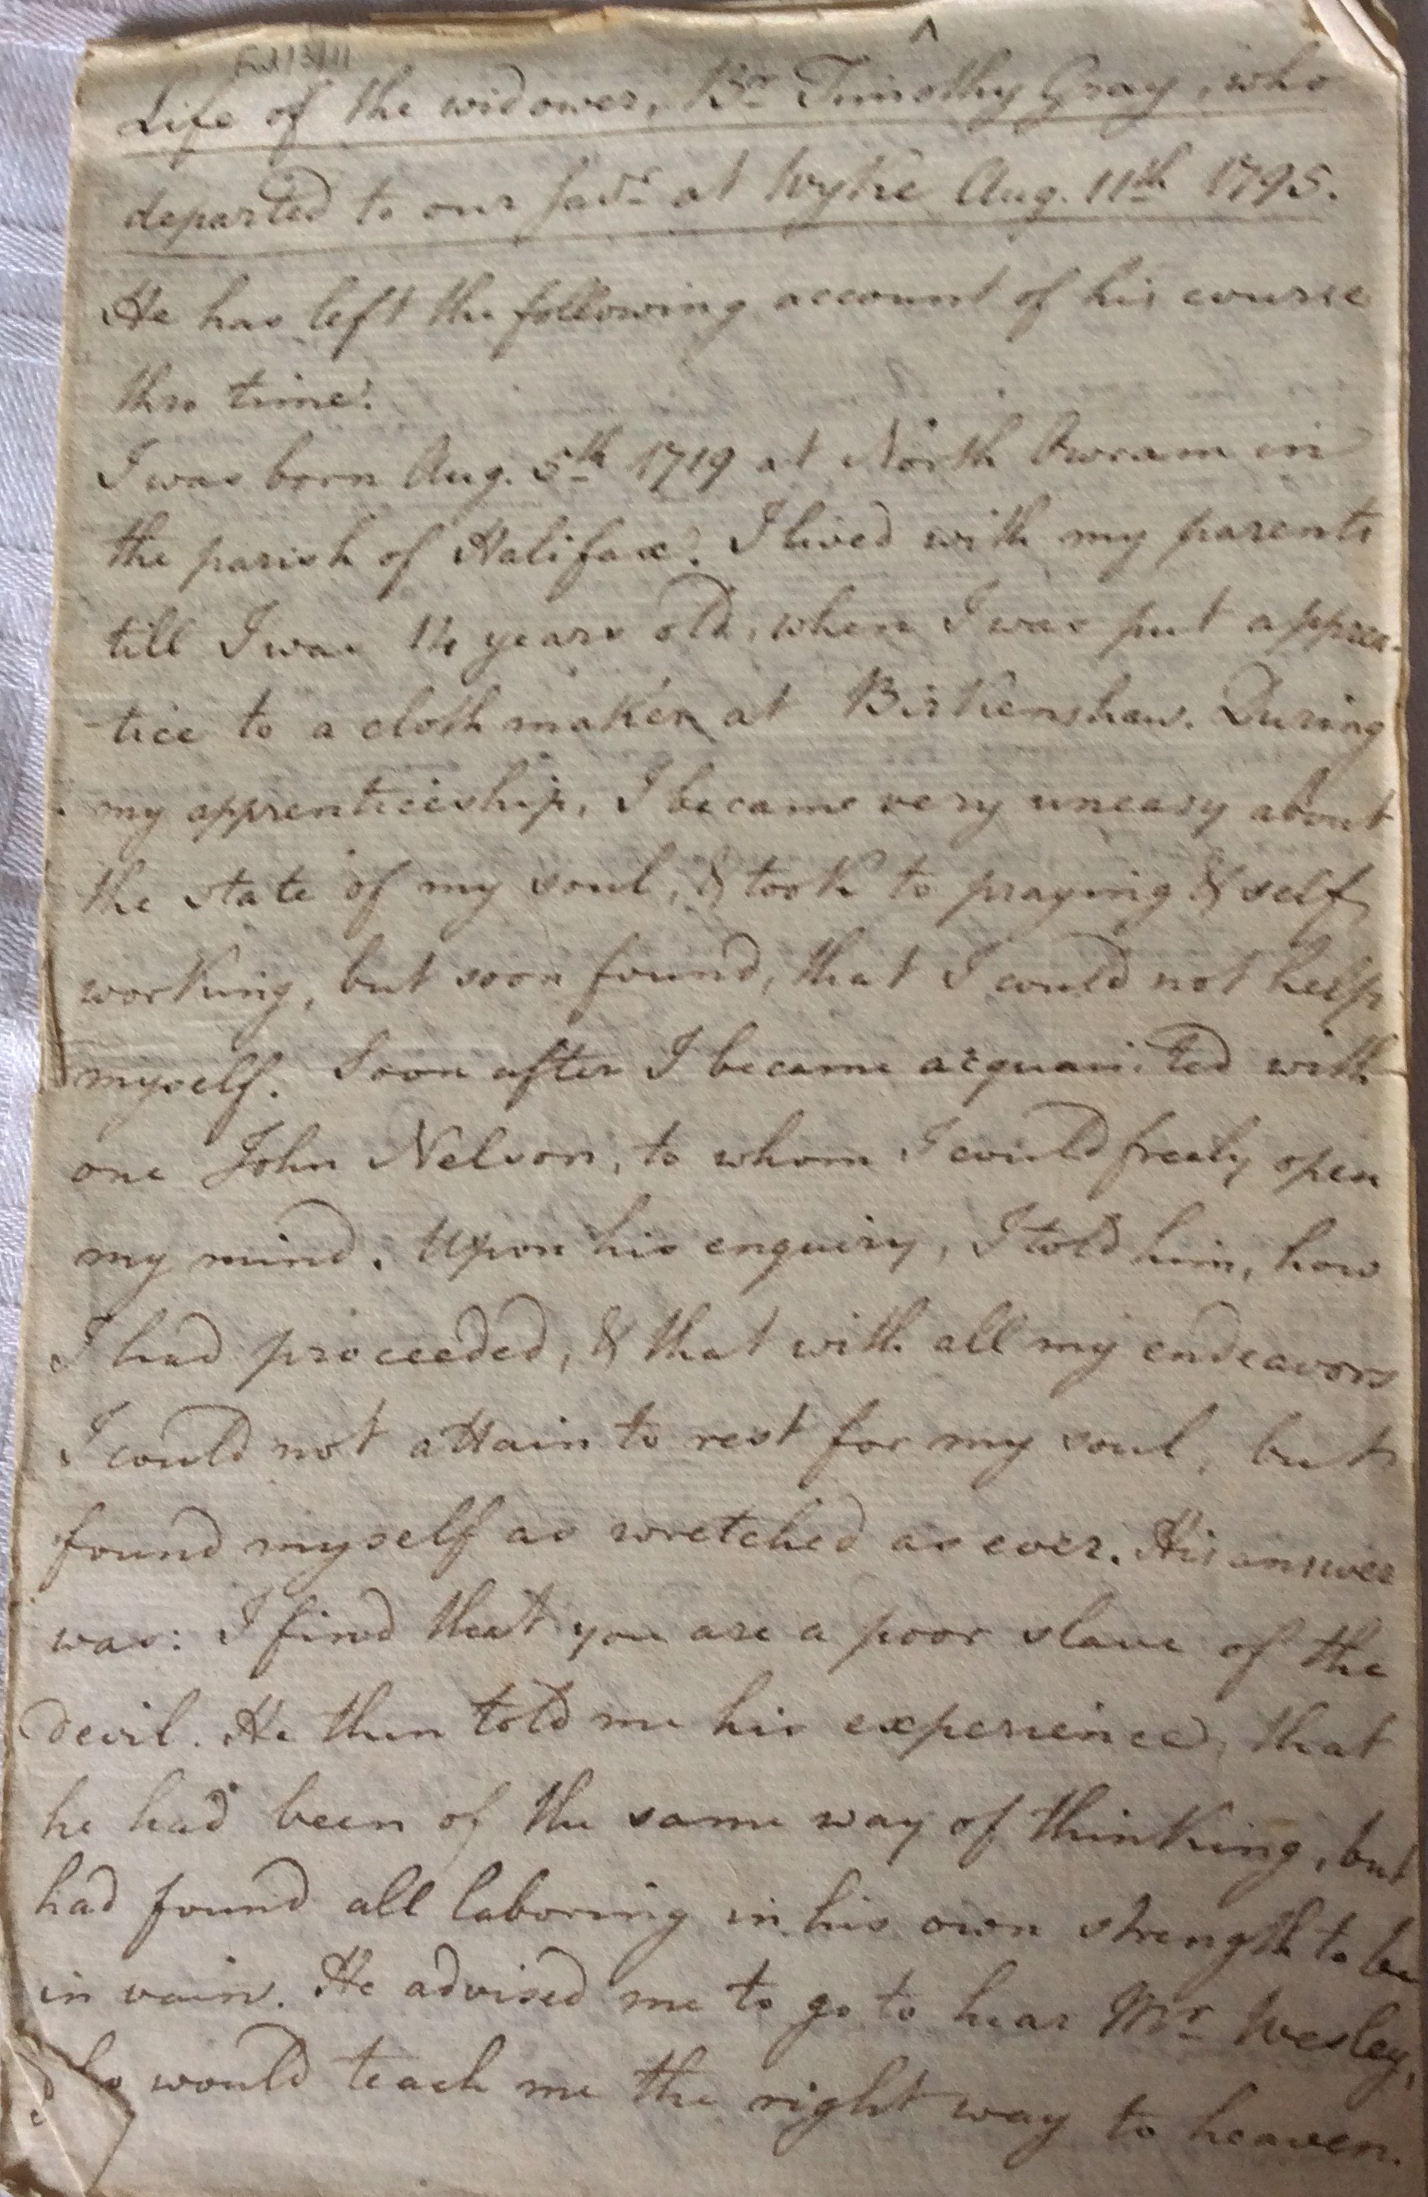 Life of the widower, Br. Timothy Gray, who
departed to our Savr. at Wyke Aug. 11th 1795.
He has left the following account of his course
thro time.
I was born Aug. 5th 1719 at North Owram in
the parish of Halifax. I lived with my parents
till I was 14 years old, when I was put appren-
-tice to a cloth maker at Birkenshaw. During
my apprenticeship, I became very uneasy about
the state of my soul, & took to praying & self
working, but soon found, that I could not help
myself. Soon after I became acquainted with
one John Nelson, to whom I could freely open
my mind. Upon his enquiry, I told him, how
I had proceeded, & that with all my endeavors
I could not attain to rest for my soul, but
found myself as wretched as ever. His answer
was: I find that you are a poor slave of the
devil. He then told me his experience, that
he had been of the same way of thinking, but
had found all laboring in his own strength to be
in vain. He advised me to go to hear Mr. Wesley,
who would teach me the right way to heaven.